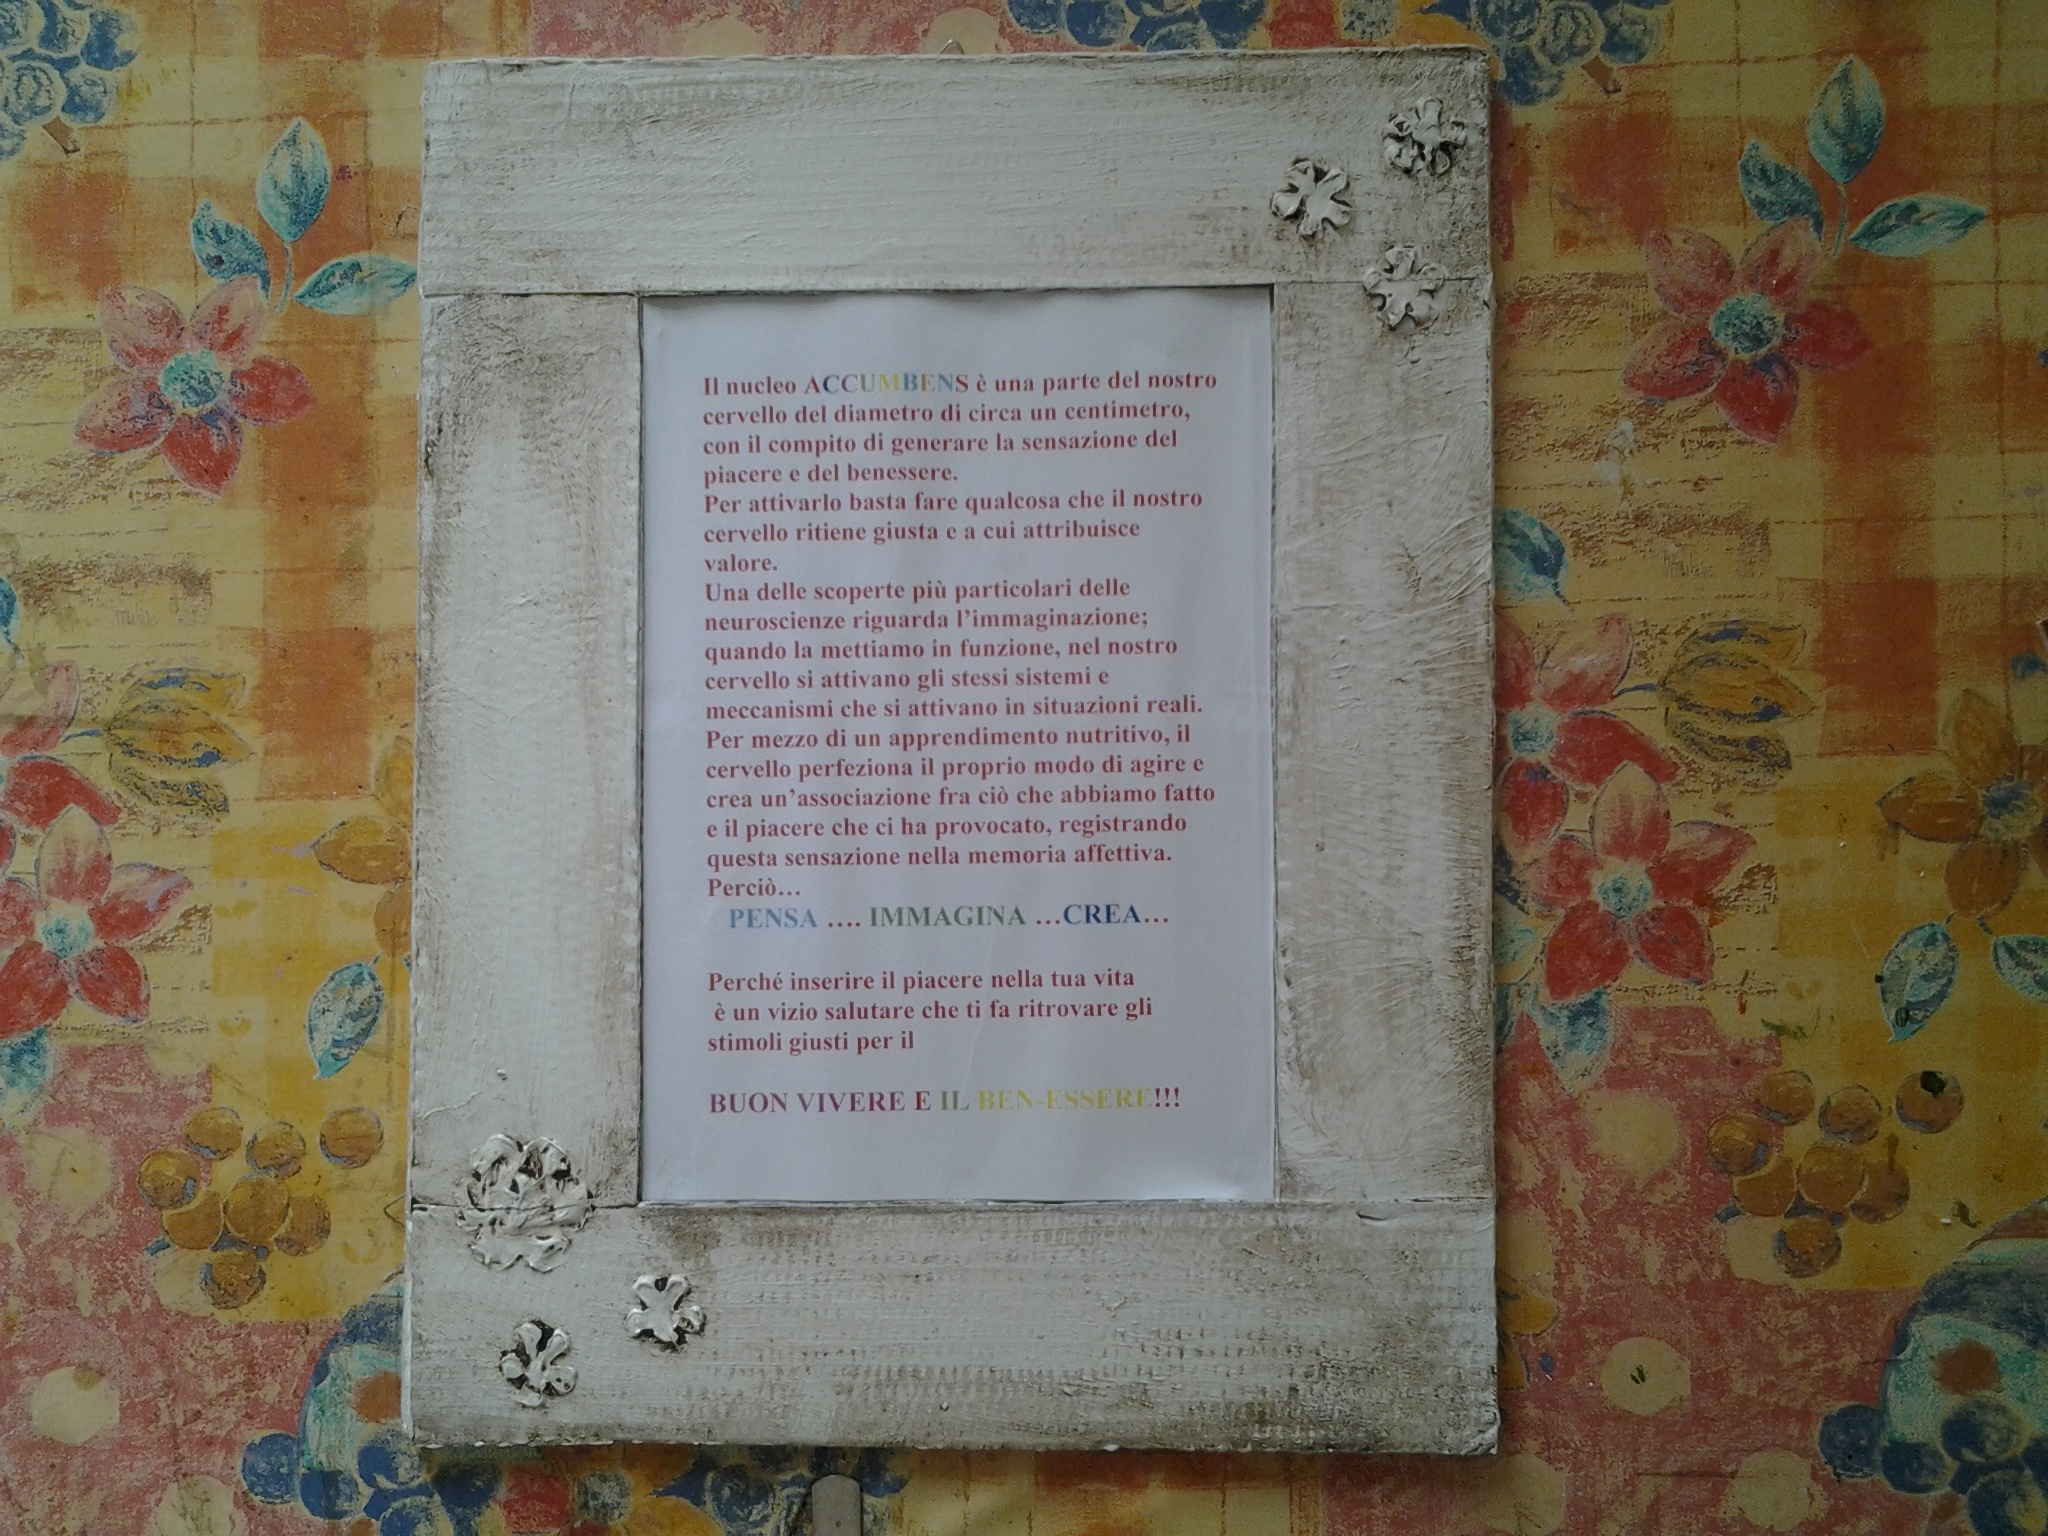 Il nucleo ACCUMBENS è una parte del nostro
cervello del diametro di circa un centimetro,
con il compito di generare la sensazione del
piacere e del benessere.
Per attivarlo basta fare qualcosa che il nostro
cervello ritiene giusta e a cui attribuisce
valore.
Una delle scoperte più particolari delle
neuroscienze riguarda l’immaginazione;
quando la mettiamo in funzione, nel nostro
cervello si attivano gli stessi sistemi e
meccanismi che si attivano in situazioni reali.
Per mezzo di un apprendimento nutritivo, il
cervello perfeziona il proprio modo di agire e
crea un’associazione fra ciò che abbiamo fatto
e il piacere che ci ha provocato, registrando
questa sensazione nella memoria affettiva.
Perciò…
PENSA …. IMMAGINA …CREA…
Perché inserire il piacere nella tua vita
è un vizio salutare che ti fa ritrovare gli
stimoli giusti per il
BUON VIVERE E IL BEN-ESSERE!!!